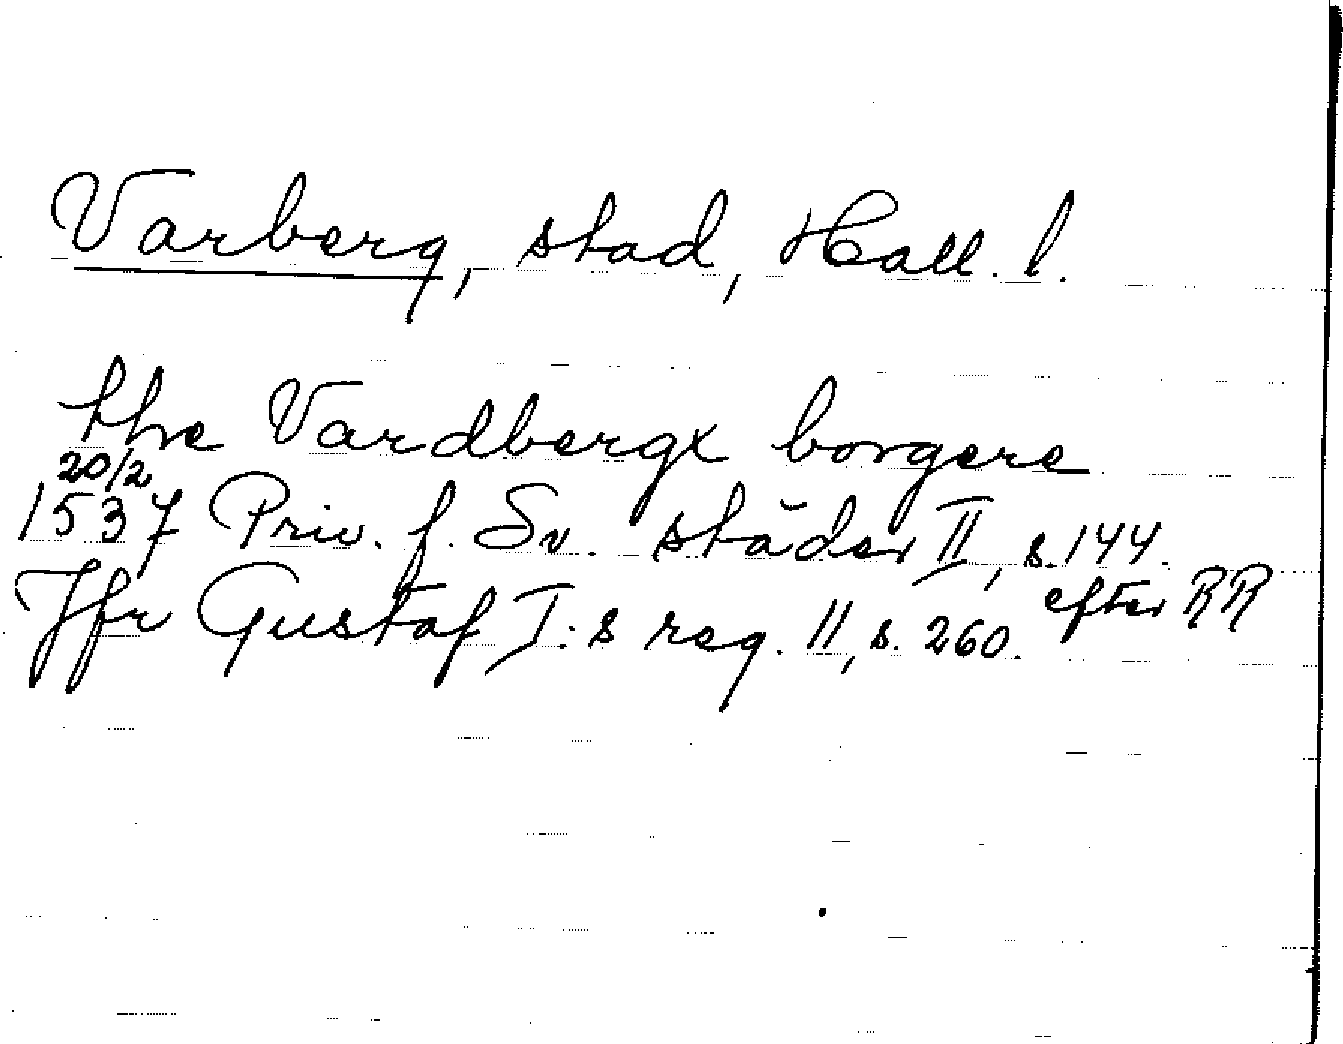 Varberg, stad, Hall. l.
the Vardbergx borgere
20/2
1537 Priv. f. Sv. städer II, s. 144.
efter RR
Jfr Gustaf I:s reg. 11, s. 260.